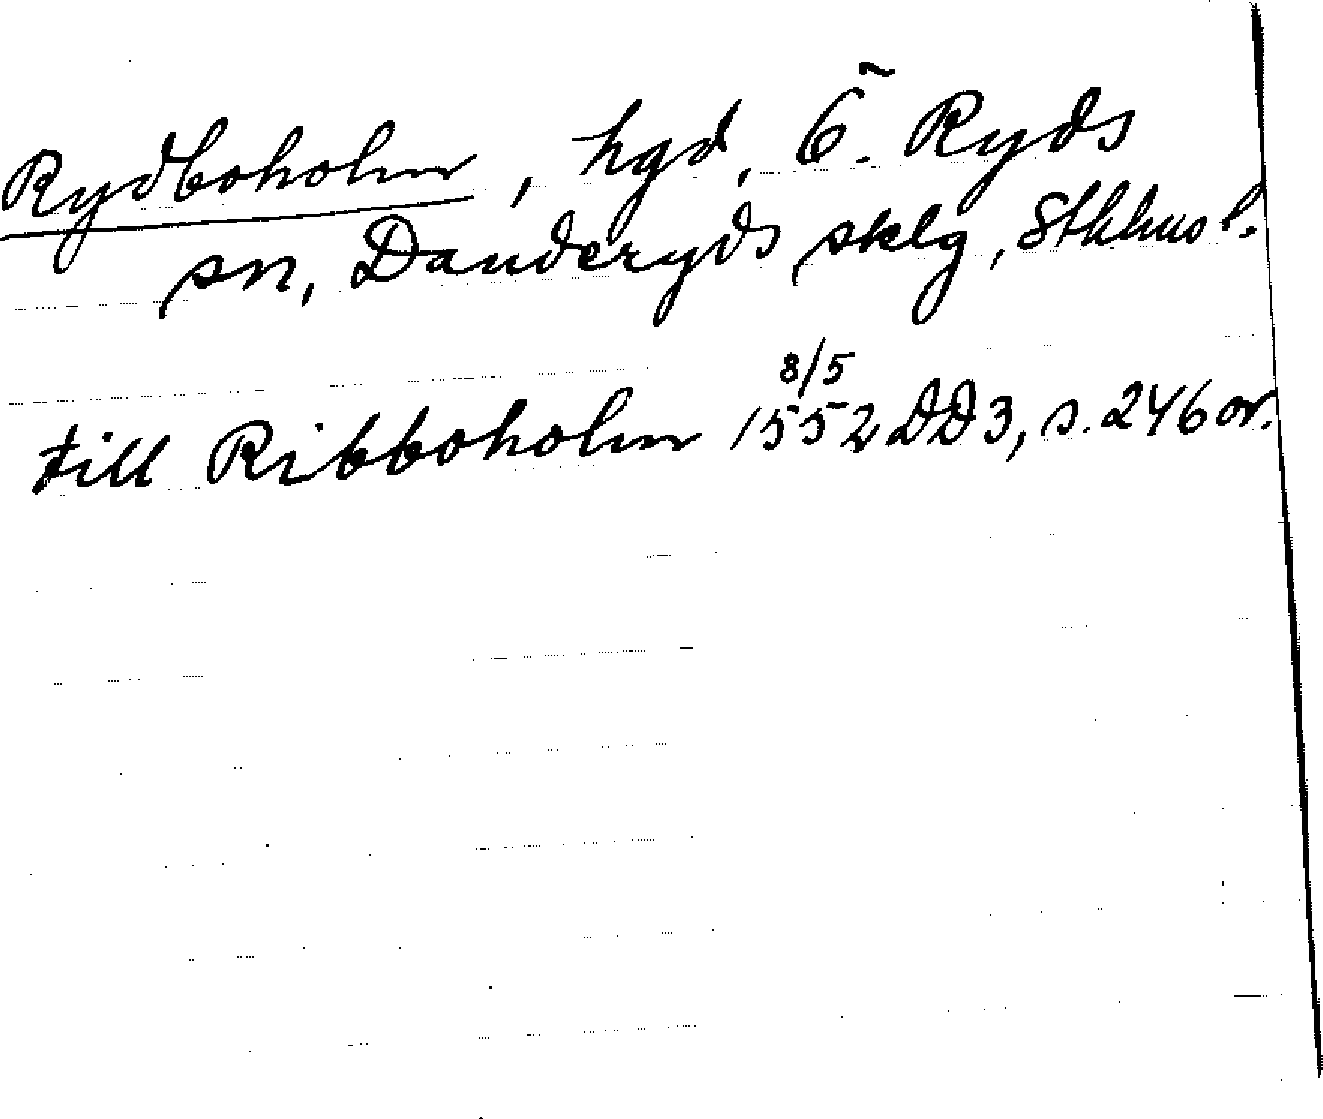 Rydboholm, hgd, Ö. Ryds
sn, Danderyds sklg, Sthlms l.
8/5
till Ribboholm 1552 DD3, s. 246 or.